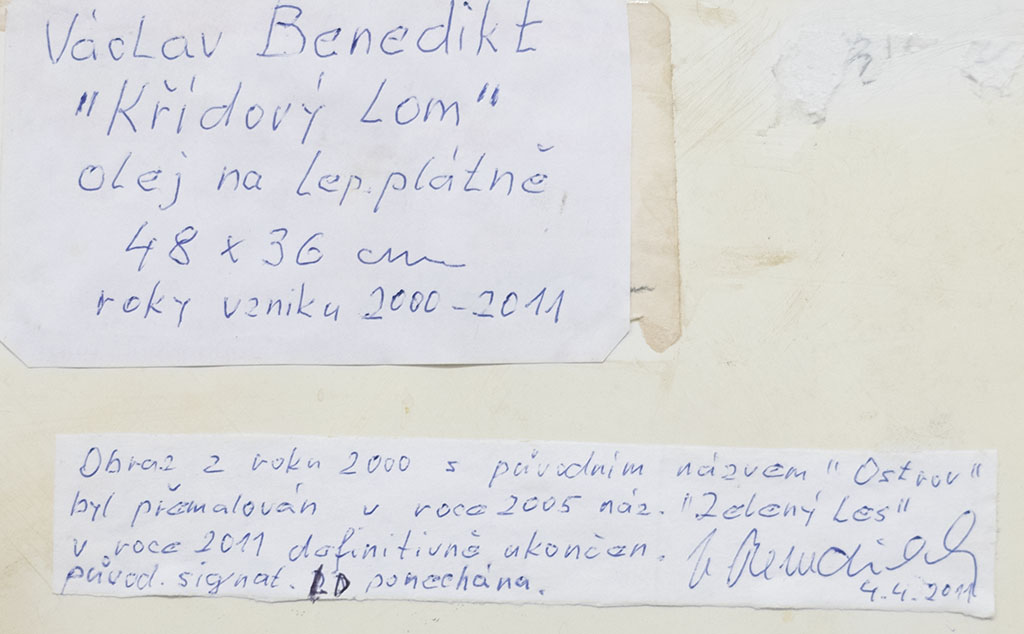 Václav Benedikt
"Křídový Lom"
olej na lep. plátně
48 x 36 cm
roky vzniku 2000-2011
Obraz z roku 2000 s původním názvem "Ostrov"
byl přemalován v roce 2005 náz. "Zelený Les"
v roce 2011 definitivně ukončen.
původ. signat. LD ponechána.
V Benedikt
4.4.2011